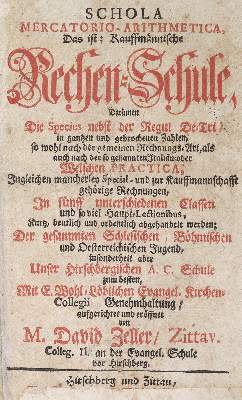 SCHOLA
MERCATORIO-ARITHMETICA,
Das ist: Kauffmännische
Rechen-Schule,
Darinnen
Die Species nebst der Regul De-Tri/
in gantzen und gebrochenen Zahlen,
so wohl nach der gemeinen Rechnungs-Art, als
auch nach der so genannten Italiæ- oder
Welschen PRACTICA,
Ingleichen mancherley Special- und zur Kauffmannschafft
gehörige Rechnungen,
In fünff unterschiedenen Classen
und so viel Haupt-Lectionibus,
Kurtz, deutlich und ordentlich abgehandelt werden;
Der gesammten Schlesischen, Böhmischen
und Oesterreichischen Jugend,
insonderheit aber
Unser Hirschbergischen A. C. Schule
zum besten,
Mit E. Wohl-Löblichen Evangel. Kirchen-
Collegii Genehmhaltung,
auffgerichtet und eröffnet
von
M. David Zeller/ Zittav.
Colleg. II. an der Evangel. Schule
vor Hirschberg.
Hirschberg und Zittau,